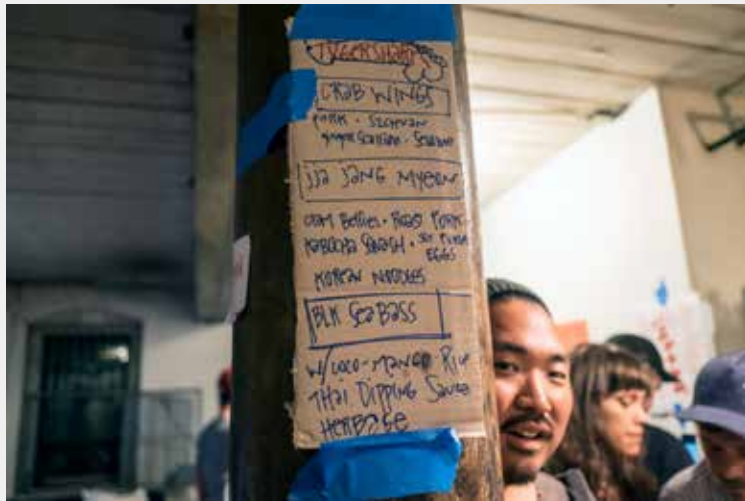 CRAB WINGS
PORK · SZCHUAN
GINGER SCALLION ·
JJA JANG MYEON
CLAM BELLIES · ROAST PORK
KABOCHA SQUASH ·
EGGS
KOREAN NOODLES
BLK SEA BASS
W/ COCO-MANGO RICE
THAI DIPPING SAUCE
HERBAGE